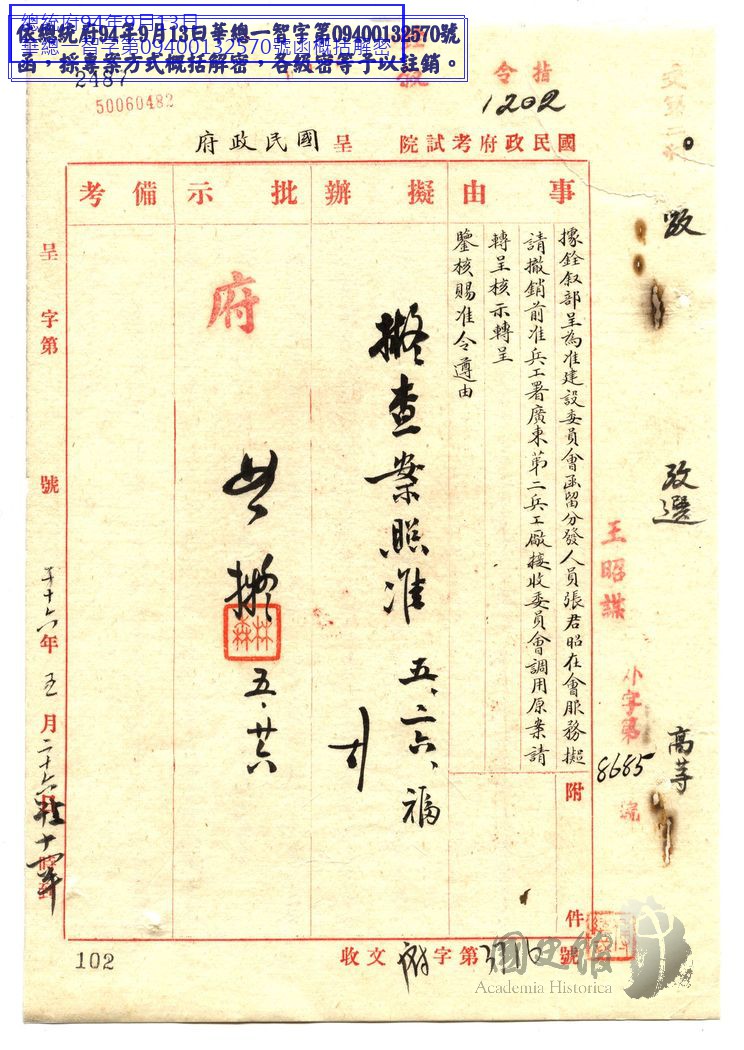 總統府94年9月13日
華總一智字第09400132570號函概括解密
依總統府94年9月13日華總一智字第09400132570號
函，採專案方式概括解密，各級密等予以註銷。
2487
50060482
指令
1202
國民政府考試院 呈 國民政府
事由
擬辦
批示
備考
據銓敘部呈為准建設委員會函留分發人員張君昭在會服務擬
請撤銷前准兵工署廣東第二兵工廠接收委員會調用原案請
轉呈核示轉呈
鑒核賜准令遵由
附件
擬查案照准 五、二六、福
府
如擬
林森
五、廿六
呈字第 號
年五月二十六日
收文府字第3716號
102
改選
高等
王昭謀
字第8685號
國史館
Academia Historica